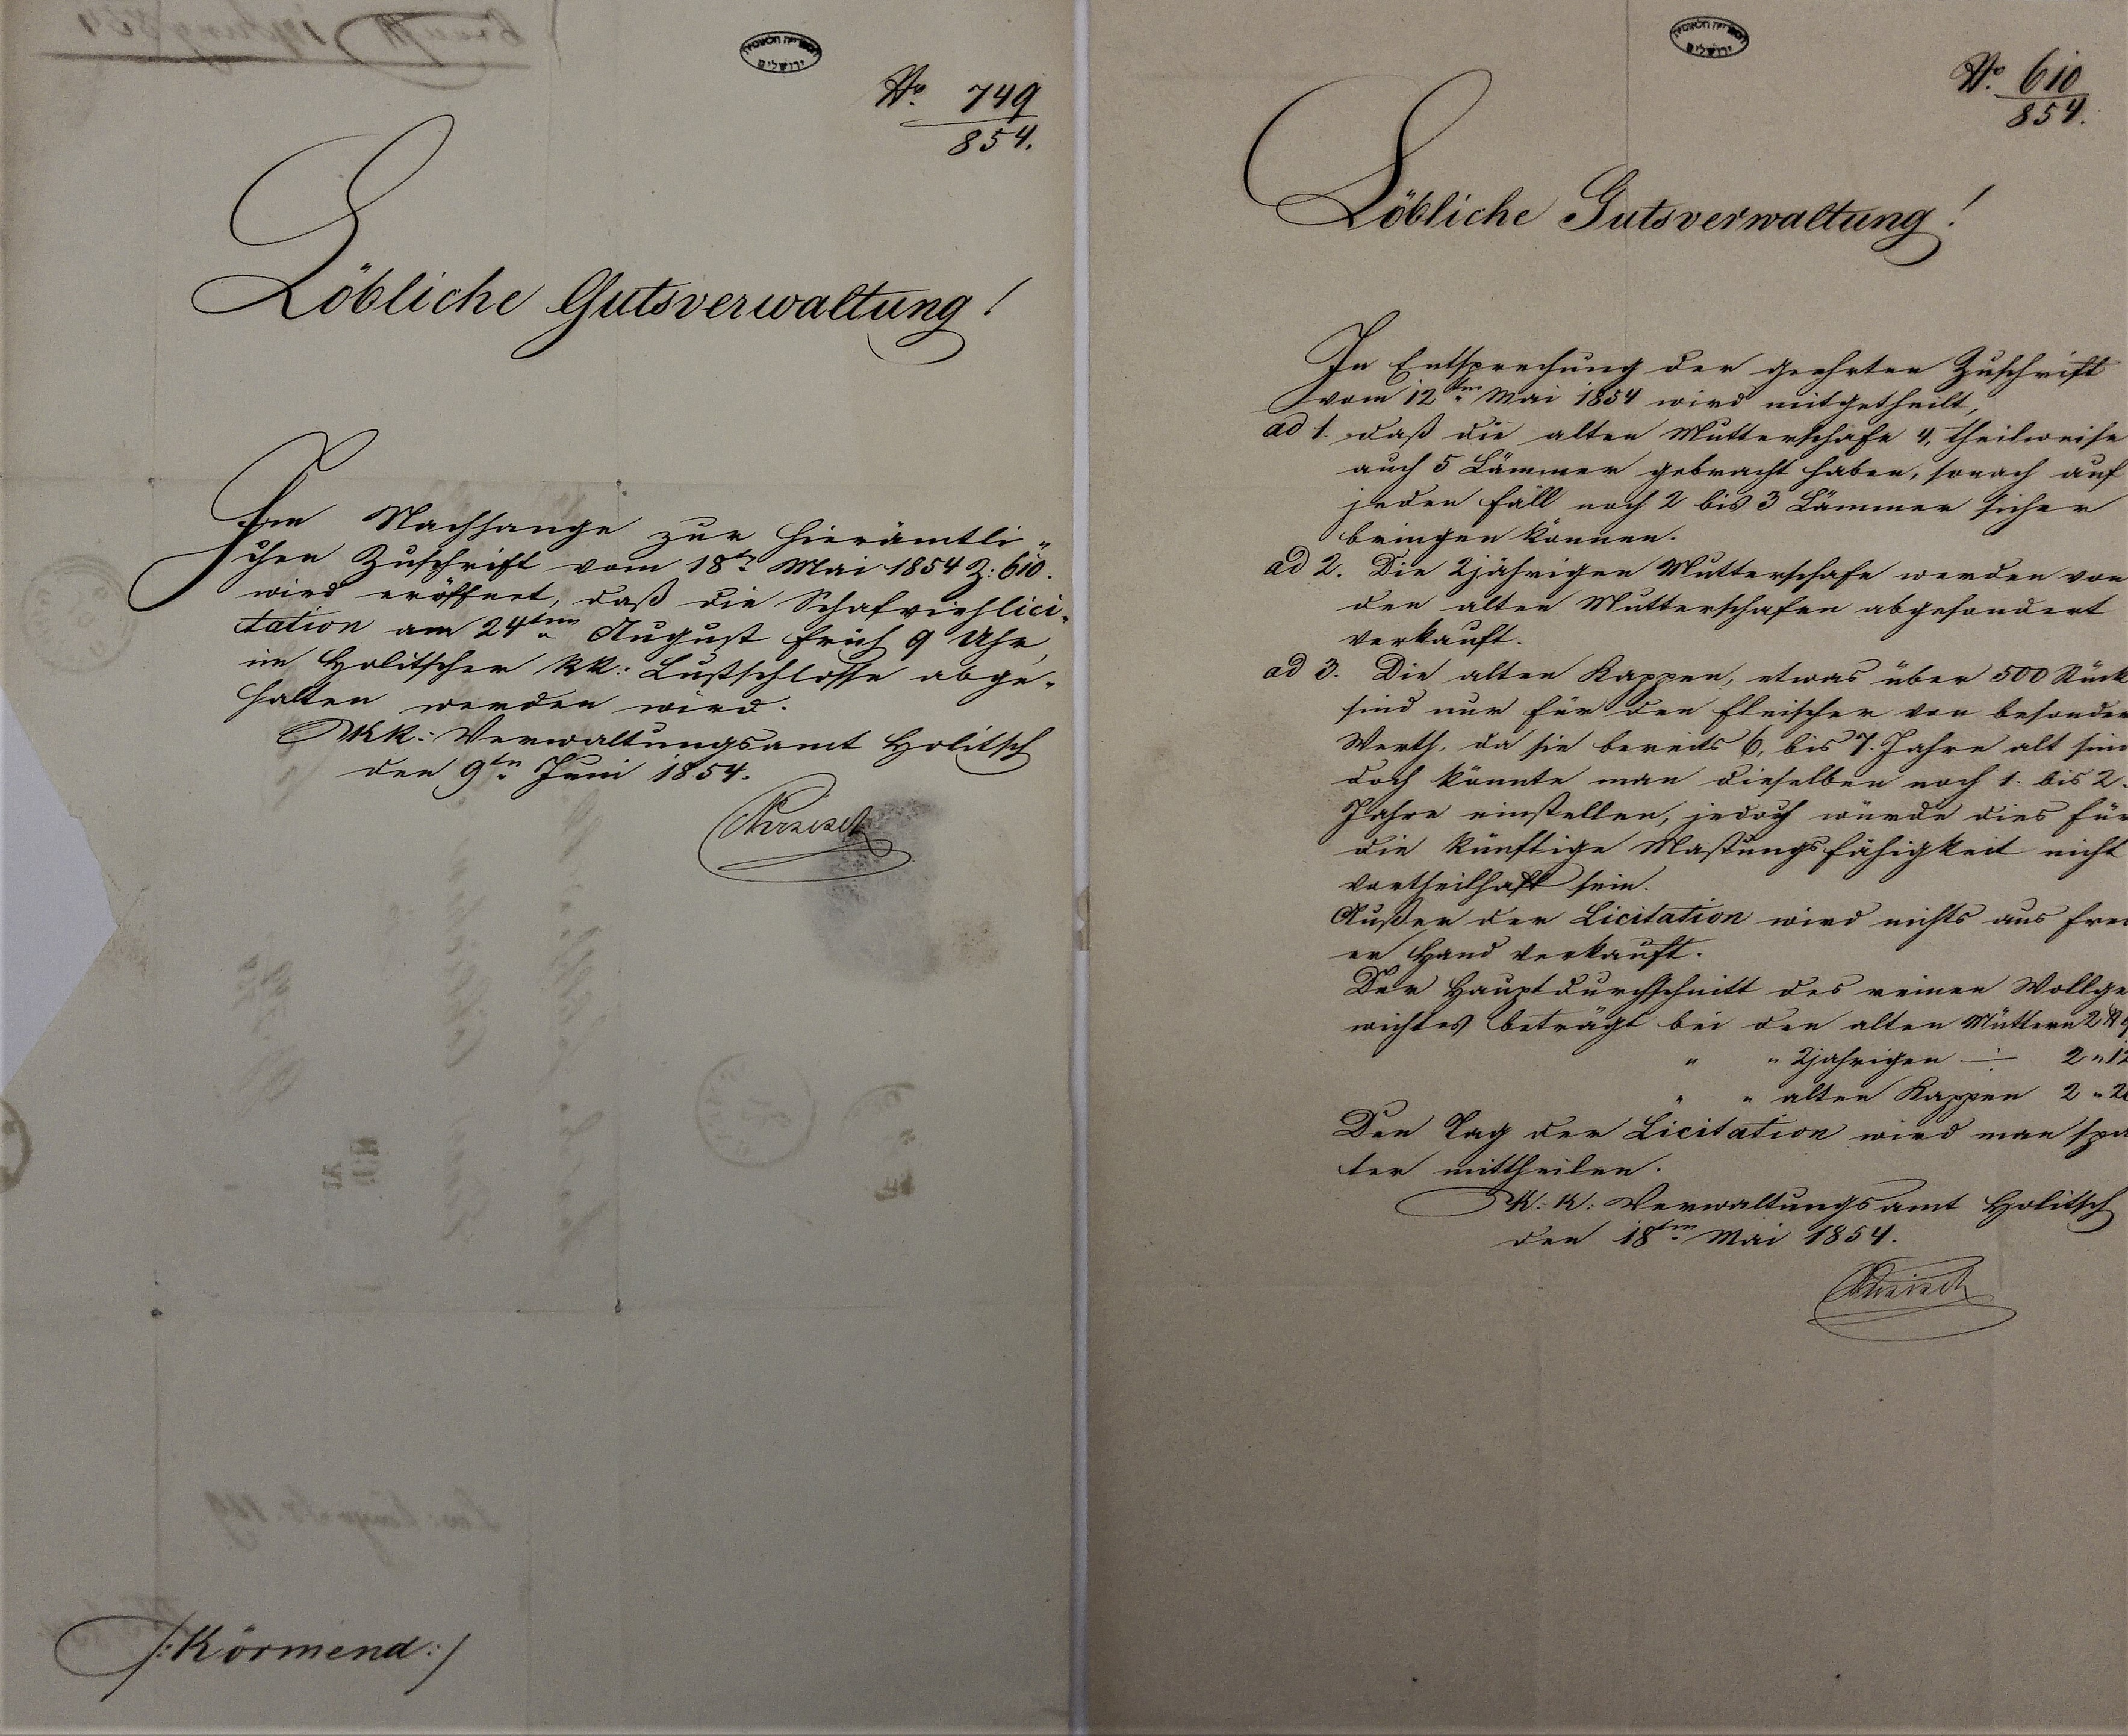 הספרייה הלאומית
ירושלים
No. 749
854.
Löbliche Gutsverwaltung!
Im Nachhange zur hierämtli„
chen Zuschrift vom 18tn Mai 1854 Z: 610.
wird eröffnet, daß die Schafviehlici„
tation am 24ten August früh 9 Uhr,
im Holitscher KK: Lußtschlosse abge„
halten werden wird.
KK: Verwaltungsamt Holitsch
den 9tn Juni 1854.
/:Körmend:/
הספרייה הלאומית
ירושלים
No. 610
854.
Löbliche Gutsverwaltung!
In Entsprechung der geehrten Zuschrift
vom 12ten Mai 1854 wird mitgetheilt,
ad 1. daß die alten Mutterschafe 4, theilweise
auch 5 Lämmer gebracht haben, sonach auf
jeden Fall noch 2 bis 3 Lämmer sicher
bringen können.
ad 2. Die 2jährigen Mutterschafe werden von
den alten Mutterschafen abgesondert
verkauft.
ad 3. Die alten Kappen, etwas über 500 Stück
sind nur für den Fleischer von besonder
Werth, da sie bereits 6, bis 7. Jahre alt sin
doch könnte man dieselben noch 1. bis 2.
Jahre einstellen, jedoch würde dies für
die künftige Mastungsfähigkeit nicht
vortheilhaft sein.
Außer der Licitation wird nichts aus frei
er Hand verkauft.
Der Hauptdurchschnitt des reinen Wollge
wichtes beträgt bei den alten Müttern 2
" " 2jahrigen — 2 " 12
" " alten Kappen 2 " 2
Den Tag der Licitation wird man spä
ter mittheilen.
K: K: Verwaltungsamt Holitsch
den 18ten Mai 1854.